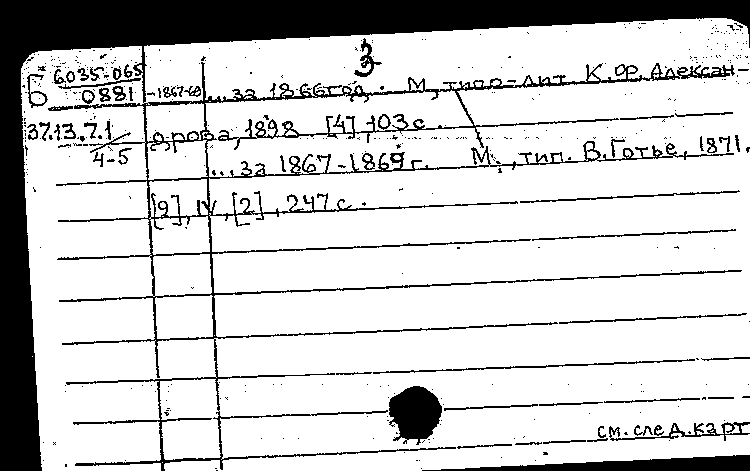 3
Б 6035-065
0881
-1867-69
...за 1866год. М., типо-лит. К.Ф. Алексан-
дрова, 1898 [4], 103с.
37.13.7.1
4-5
...за 1867-1869г. М., тип. В.Готье, 1871.
[9], IV, [2], 247с.
см. след. карт